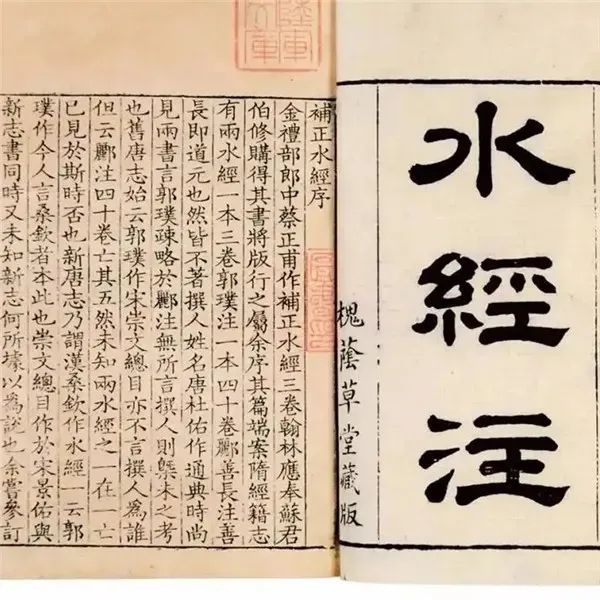 水經注
槐蔭草堂藏版
陸軍文庫
補正水經序
金禮部郎中蔡正甫作補正水經三卷翰林應奉蘇君
伯修購得其書將版行之屬余序其篇端案隋經籍志
有兩水經一本三卷郭璞注一本四十卷酈善長注善
長即道元也然皆不著撰人姓名唐杜佑作通典時尚
見兩書言郭璞疎略於酈注無所言撰人則槩未之考
也舊唐志始云郭璞作宋崇文總目亦不言撰人為誰
但云酈注四十卷亡其五然未知兩水經之一在一亡
已見於斯時否也新唐志乃謂漢桑欽作水經一云郭
璞作今人言桑欽者本此也崇文總目作於宋景佑與
新志書同時又未知新志何所據以為說也余嘗參訂